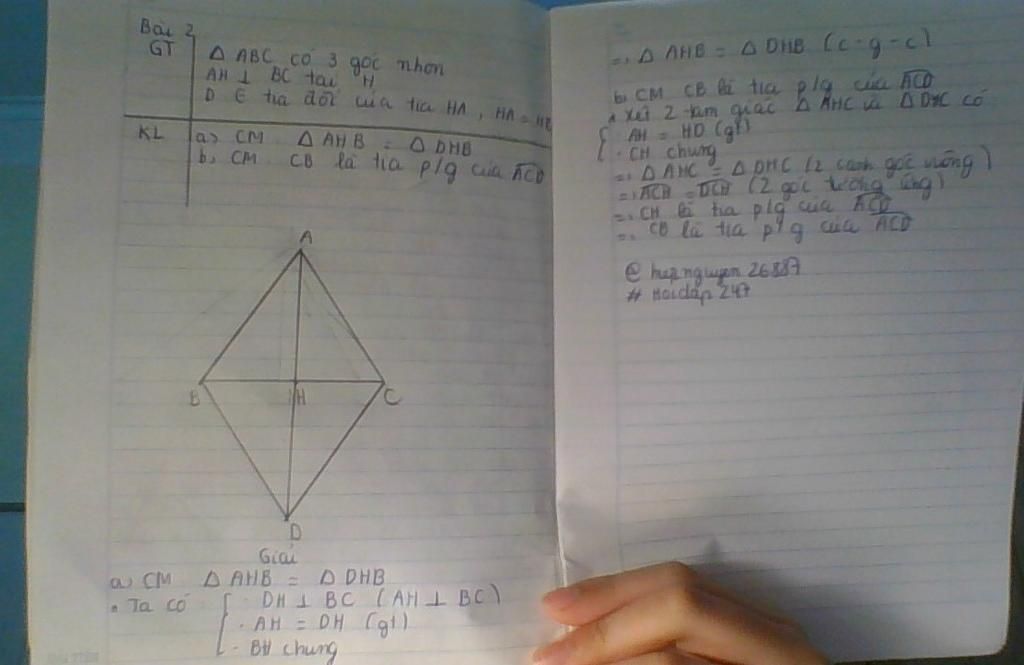 Bài 2
GT
Δ ABC có 3 góc nhọn
AH ⊥ BC tại H
D ∈ tia đối của tia HA, HA = HE
KL
a, CM Δ AHB = Δ DHB
b, CM CB là tia p/g của ACD
A
B
H
C
D
Giải
a, CM Δ AHB = Δ DHB
Ta có
DH ⊥ BC (AH ⊥ BC)
AH = DH (gt)
BH chung
=> Δ AHB = Δ DHB (c-g-c)
b, CM CB là tia p/g của ACD
Xét 2 tam giác Δ AHC và Δ DHC có
AH = HD (gt)
CH chung
=> Δ AHC = Δ DHC (2 cạnh góc vuông)
=> ACH = DCH (2 góc tương ứng)
=> CH là tia p/g của ACD
=> CB là tia p/g của ACD
@ 26887
# Hoidap247